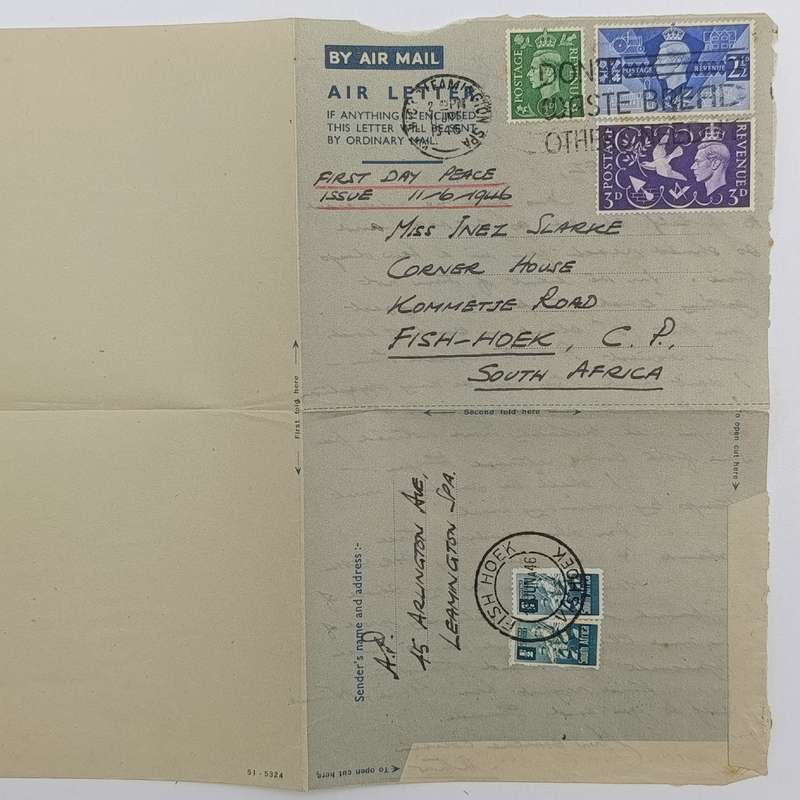 BY AIR MAIL
AIR LETTER
IF ANYTHING IS ENCLOSED
THIS LETTER WILL BE SENT
BY ORDINARY MAIL.
LEAMINGTON SPA
1946
POSTAGE REVENUE
POSTAGE REVENUE
2½D
DON'T
WASTE BREAD
OTHERS NEED IT
3D POSTAGE REVENUE 3D
FIRST DAY PEACE
ISSUE 11/6/1946
MISS INEZ SLARKE
CORNER HOUSE
KOMMETJE ROAD
FISH-HOEK, C. P.,
SOUTH AFRICA
First fold here
Second fold here
To open cut here
Sender's name and address :-
A.P.
45 ARLINGTON AVE,
LEAMINGTON SPA.
FISH HOEK
JUN 46
VISHOEK
South Africa
South Africa
51-5324
To open cut here